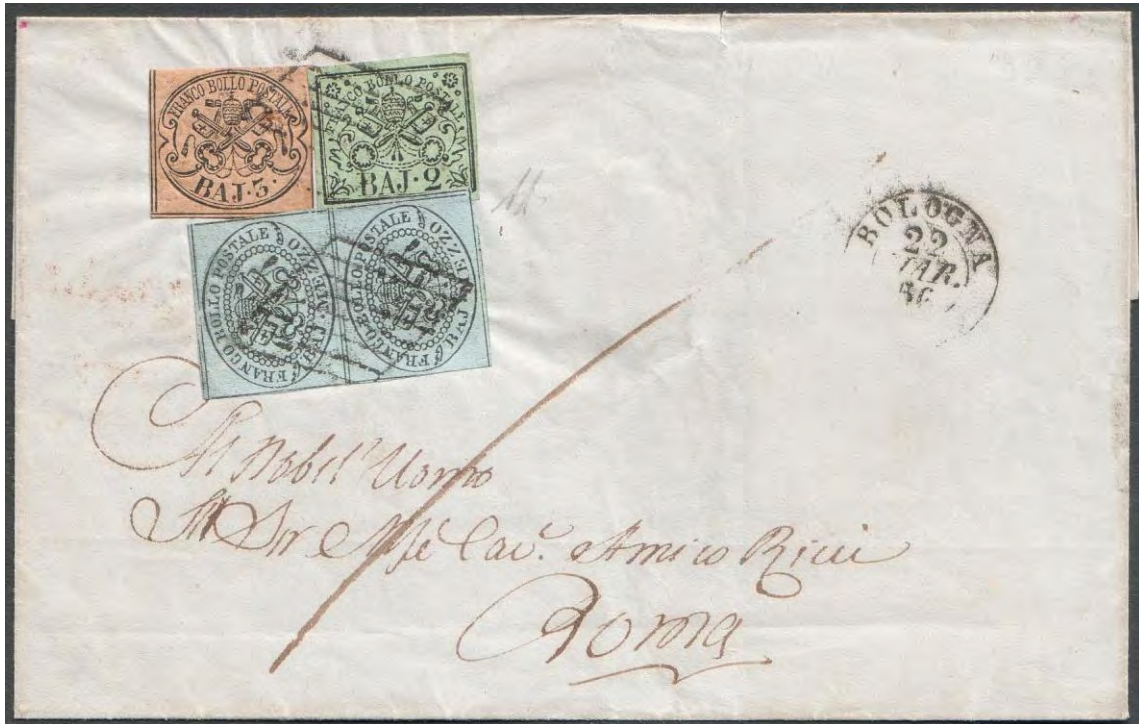 FRANCO BOLLO POSTALE
BAJ·3·
FRANCO BOLLO POSTALE
BAJ·2
FRANCO BOLLO POSTALE
BAJ 6 MEZZO
FRANCO BOLLO POSTALE
BAJ 6 MEZZO
BOLOGNA
22
MAR.
Al Nobil' Uomo
Il Sr Mse Cavr. Amico Ricci
Roma